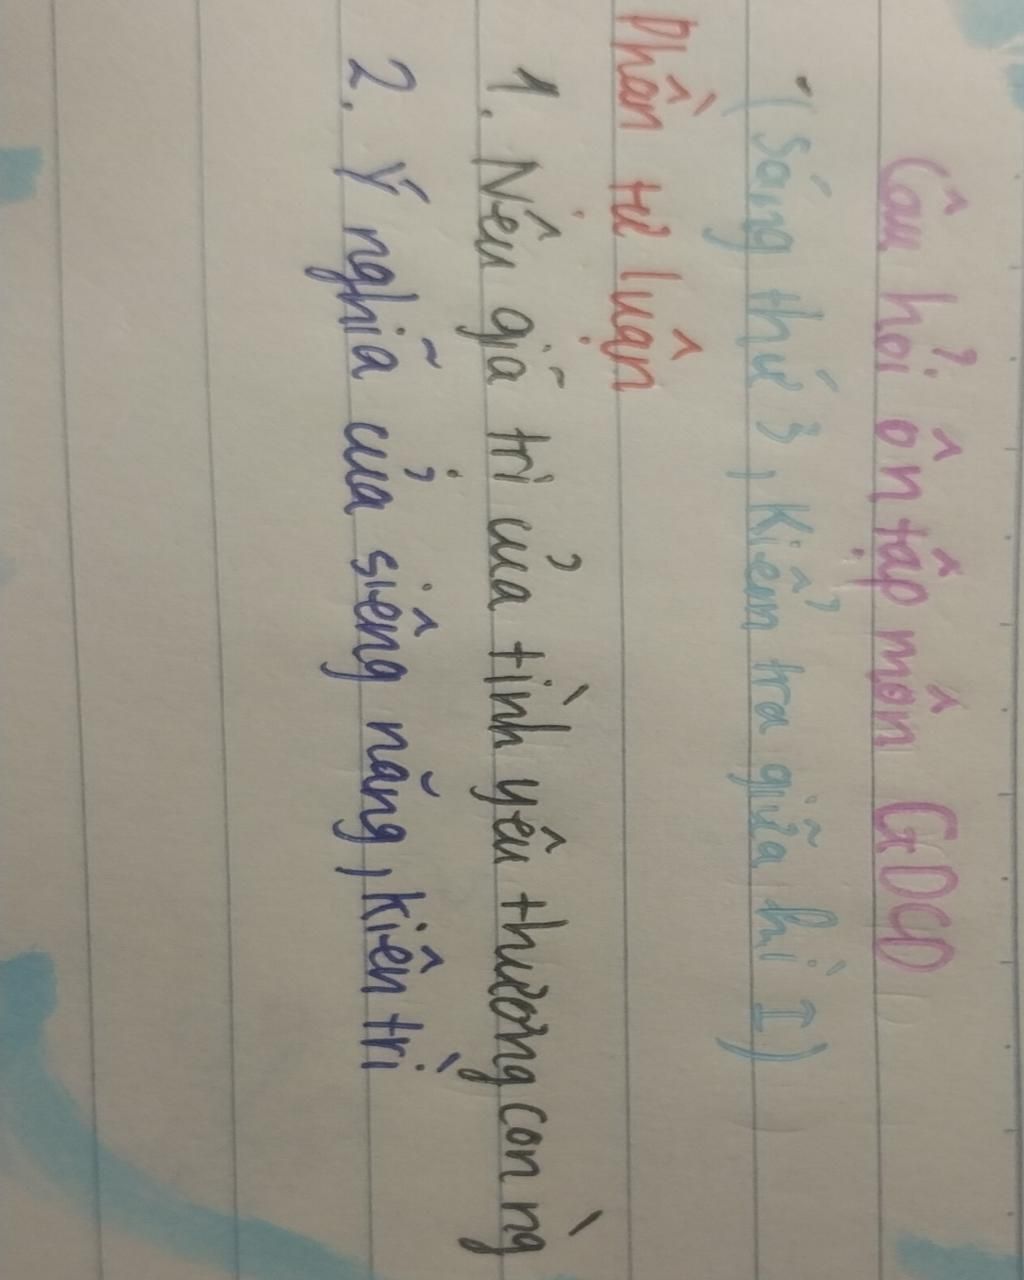 Câu hỏi ôn tập môn GDCD
(Sáng thứ 3, Kiểm tra giữa kì I)
Phần tự luận
1. Nêu giã trị của tình yêu thương con ng
2. Ý nghĩa của siêng năng, kiên trì